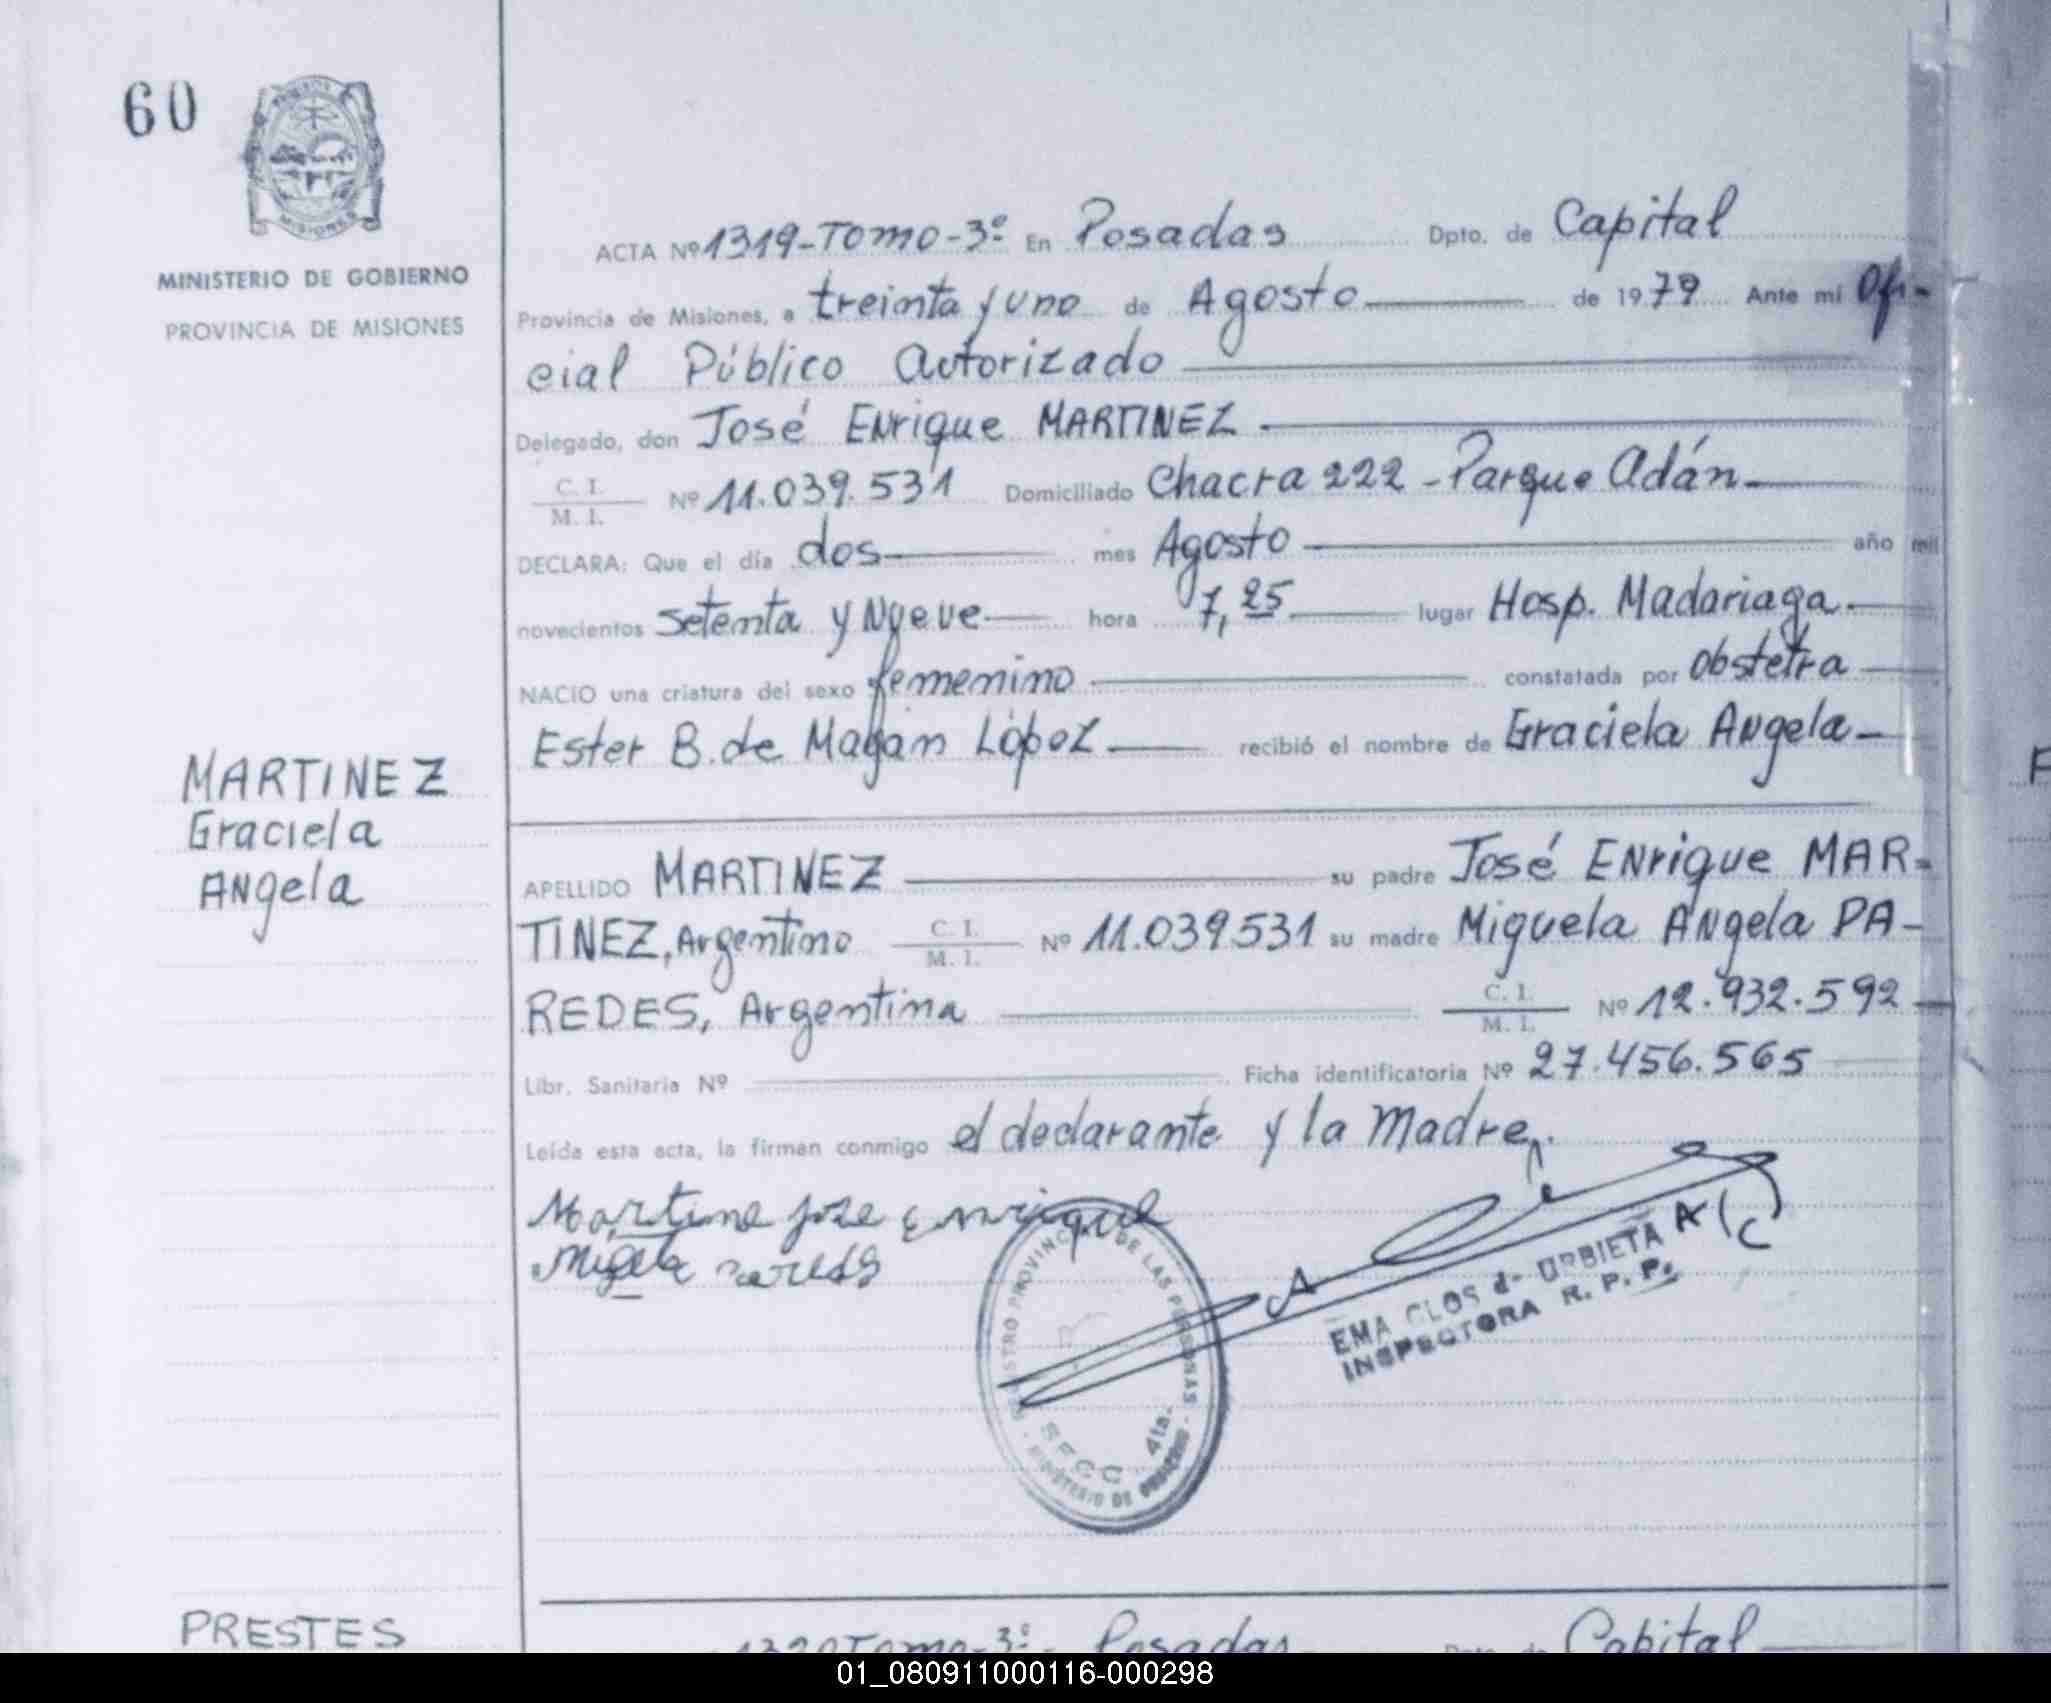 60
MISIONES
MINISTERIO DE GOBIERNO
PROVINCIA DE MISIONES
ACTA Nº 1319-Tomo-3º En Posadas Dpto. de Capital
Provincia de Misiones, a treinta y uno de Agosto de 1979 Ante mi Ofi-
cial Público Autorizado
Delegado, don José Enrique MARTINEZ
C. I.
M. I.
Nº 11.039.531 Domiciliado Chacra 222 - Parque Adán
DECLARA: Que el día dos mes Agosto año mil
novecientos setenta y Nueve hora 7,25 lugar Hosp. Madariaga
NACIO una criatura del sexo femenino constatada por Obstetra
Ester B. de Magan López recibió el nombre de Graciela Angela
MARTINEZ
Graciela
Angela
APELLIDO MARTINEZ su padre José Enrique MAR-
TINEZ, Argentino C. I. M. I. Nº 11.039531 su madre Miguela Angela PA-
REDES, Argentina C. I. M. I. Nº 12.932.592
Libr. Sanitaria Nº Ficha identificatoria Nº 27.456.565
Leída esta acta, la firman conmigo el declarante y la Madre.
Martine jose Enrique
REGISTRO PROVINCIAL DE LAS PERSONAS
SECC. 4ta.
MINISTERIO DE GOBIERNO
EMA CLOS de URBIETA A/C
INSPECTORA R. P. P.
PRESTES
1320 Tomo-3º Posadas Dpto. de Capital
01_080911000116-000298